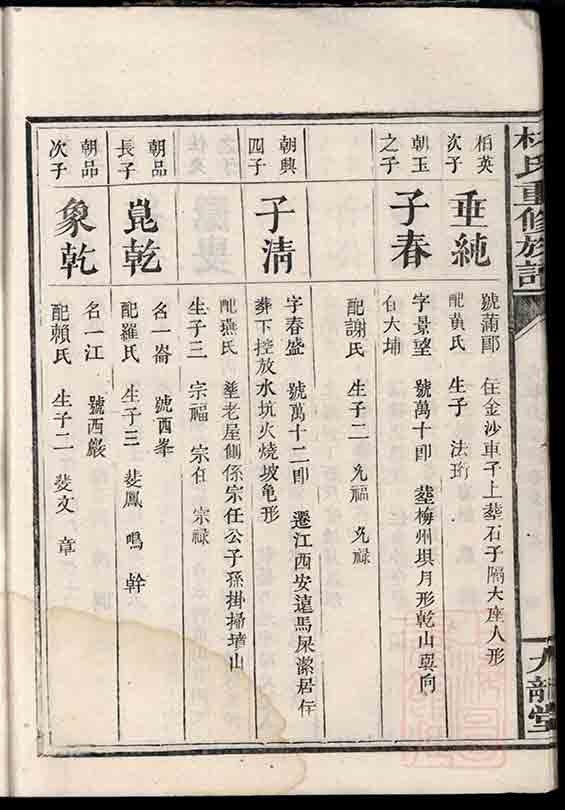 杜氏重修族譜
大龍堂
栢英
次子
垂純
號蒲郎 住金沙車子上葬石子隔大座人形
配黃氏 生子 法珩
朝玉
之子
子春
字景望 號萬十郎 葬梅州垻月形乾山巽向
住大埔
配謝氏 生子二 允福 允禄
朝興
四子
子清
字春盛 號萬十二郎 遷江西安遠馬屎潔居住
葬下控放水坑火燒坡龟形
配燕氏 塟老屋側係宗任公子孫掛掃墳山
生子三 宗福 宗任 宗禄
朝品
長子
崑乾
名一崙 號西峯
配羅氏 生子三 斐鳳 鳴 幹
朝品
次子
象乾
名一江 號西巖
配賴氏 生子二 斐文 章